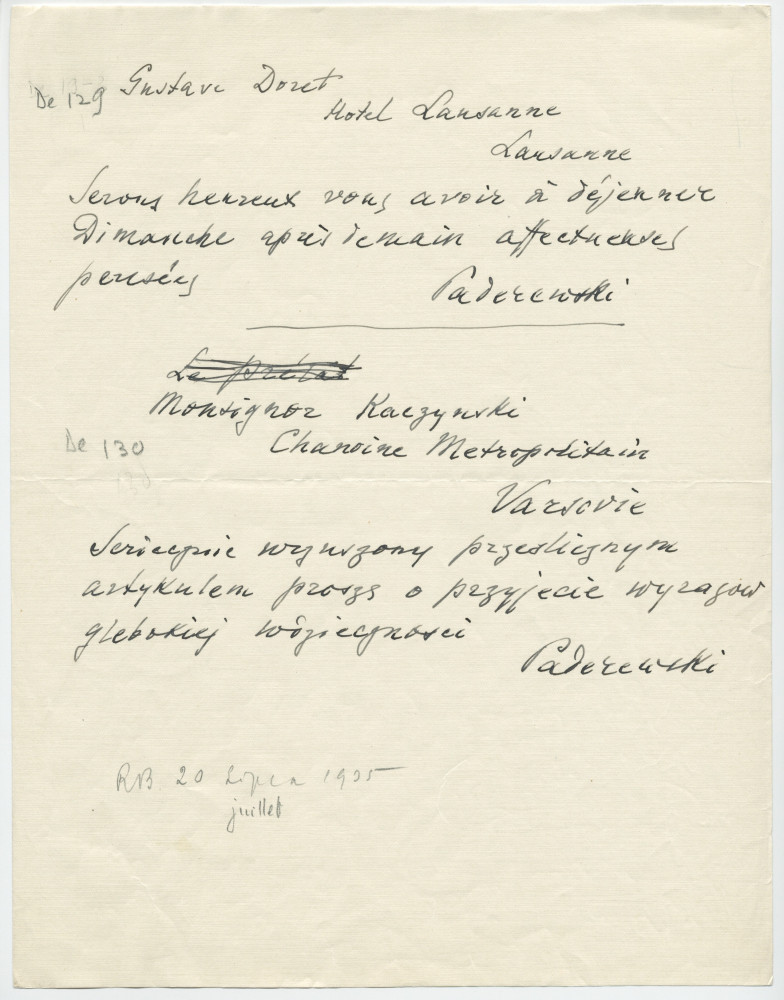 De 129 Gustave Doret
Hotel Lausanne
Lausanne
Serons heureux vous avoir à déjeuner
Dimanche après demain affectueuses
pensées Paderewski
Le prélat
Monsignor Kaczynski
De 130 Chanoine Metropolitain
130
Varsovie
Serdecznie wzruszony prześlicznym
artykulem proszę o przyjecie wyrazow
glebokiej wdzięcznosci
Paderewski
RB 20 Lipca 1935
juillet